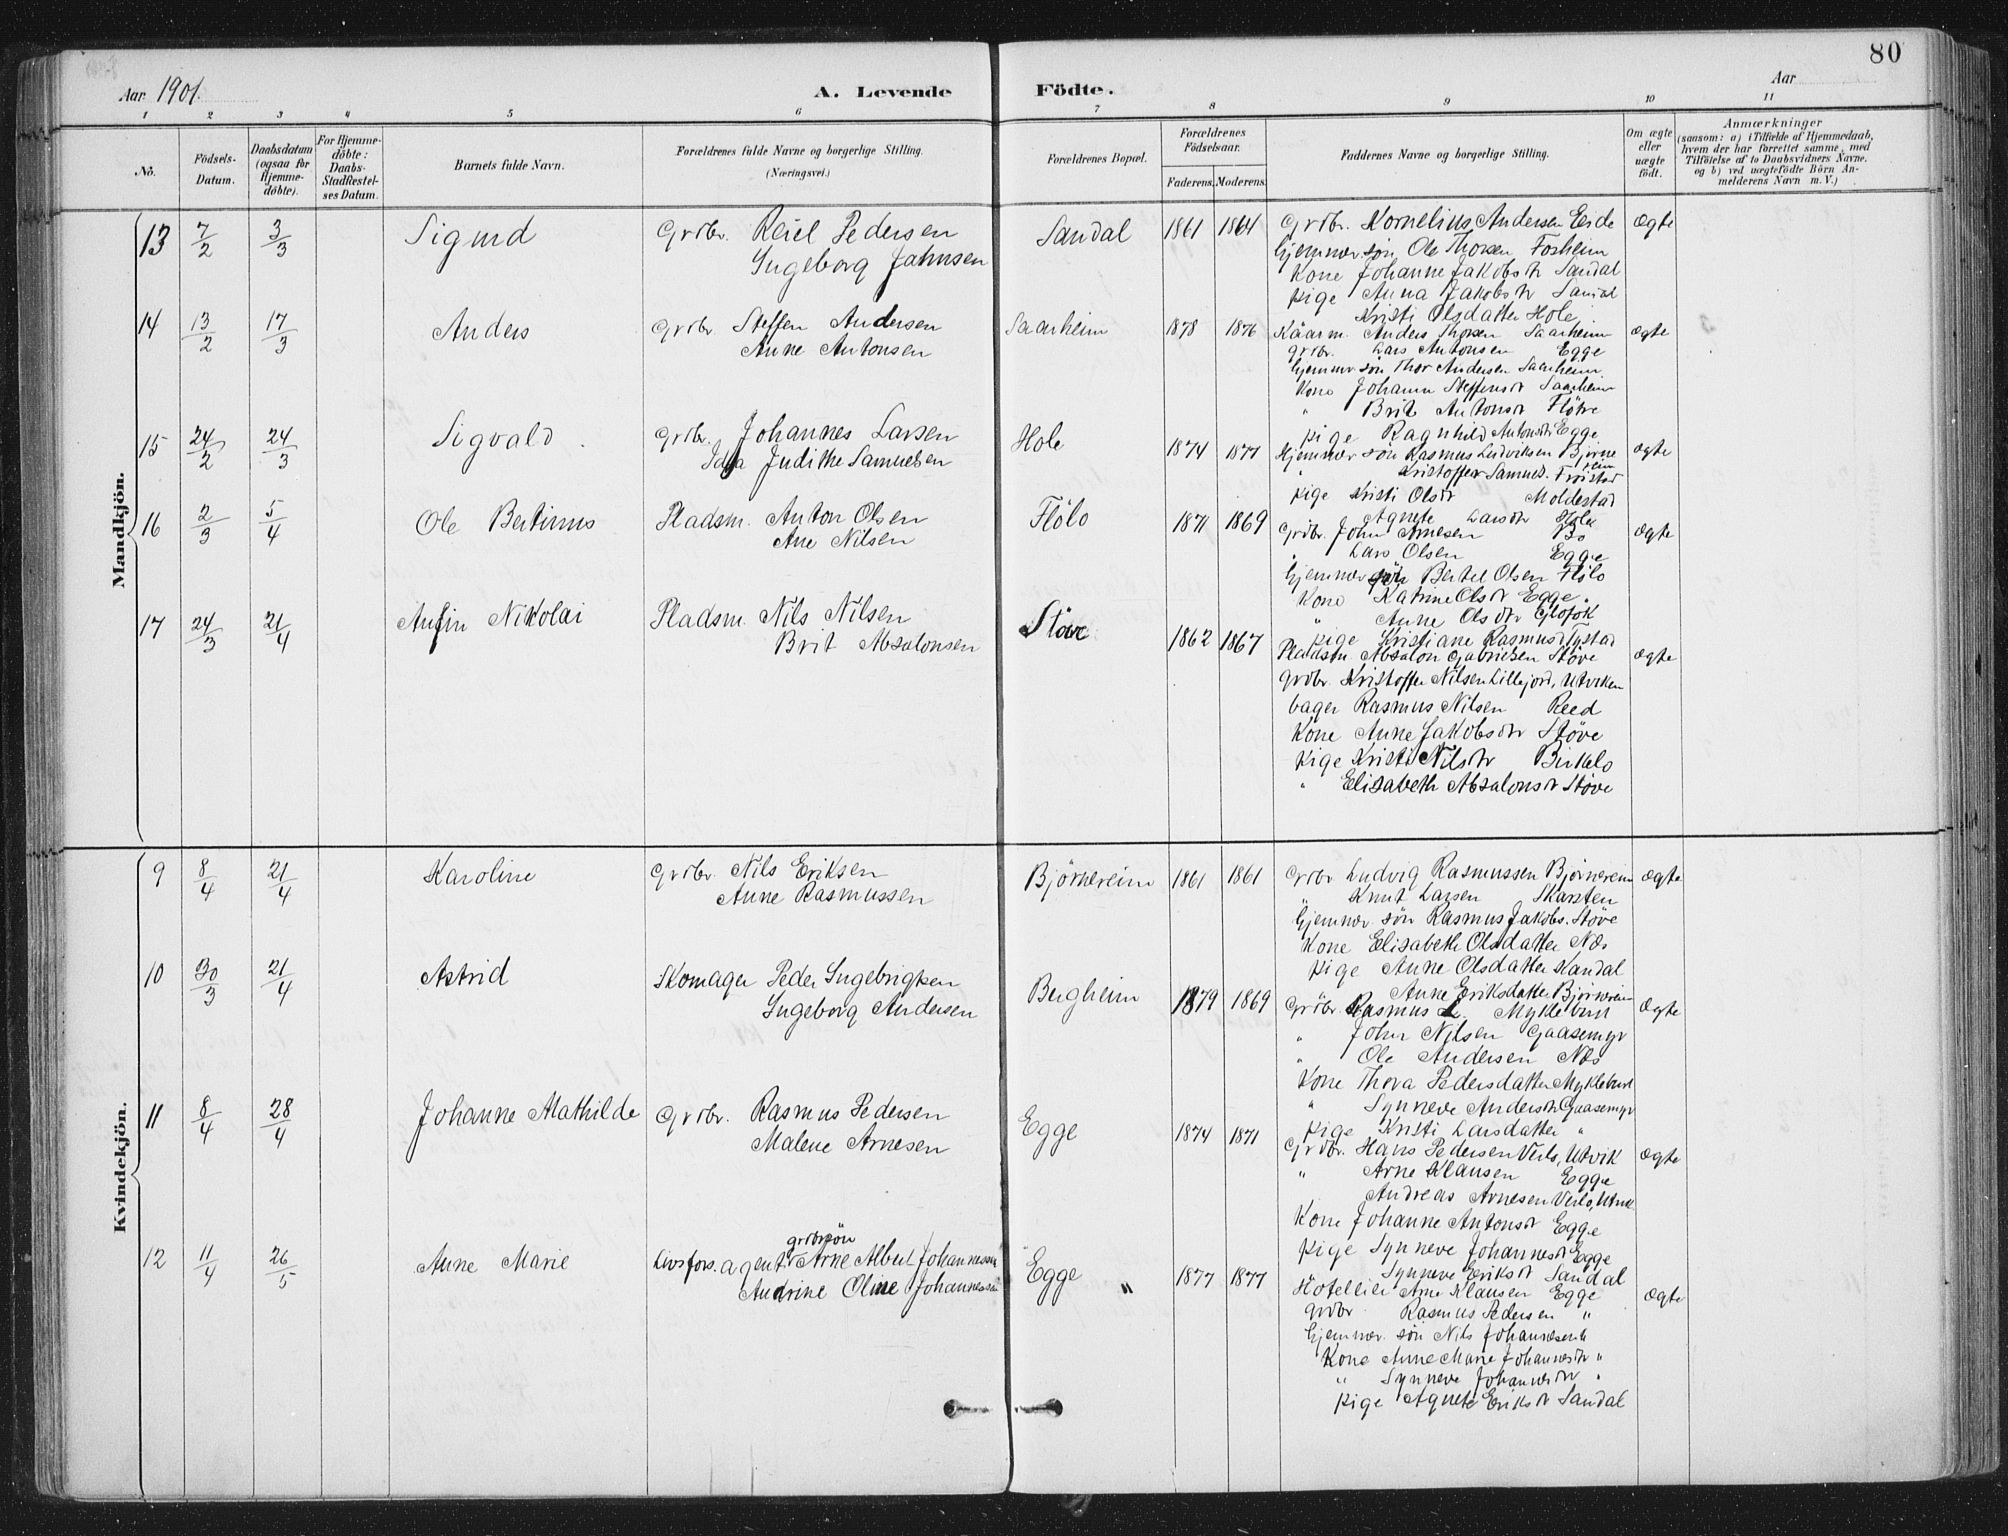 80
Aar 1901.
A. Levende Födte.
Aar
1 2 3 4 5 6 7 8 9 10 11
No.
Födsels-Datum.
Daabsdatum (ogsaa for Hjemmedöbte).
For Hjemmedöbte: Daabs-Stadfæstelses Datum.
Barnets fulde Navn.
Forældrenes fulde Navne og borgerlige Stilling. (Næringsvei.)
Forældrenes Bopæl.
Forældrenes Födselsaar.
Faderens. Moderens.
Faddernes Navne og borgerlige Stilling.
Om ægte eller uægte födt.
Anmærkninger
(saasom: a) i Tilfælde af Hjemmedaab, hvem der har forrettet samme, med Tilföielse af to Daabsvidners Navne. og b) ved uægtefödte Börn Anmelderens Navn m. V.)
Mandkjön.
13 7/2 3/3 Sigurd Grdbr. Reiel Pedersen Sandal 1861 1864 Grdbr. Kornelius Andersen Eide Ægte
Ingeborg Jahnsen Hjemmev. søn Ole Thorsen Forheim
Kone Johanne Jakobsdr Sandal
Pige Anna Jakobsdr Sandal
Kristi Olsdatter Hole
14 13/2 17/3 Anders Grdbr. Steffen Andersen Saarheim 1878 1876 Kaarm. Anders Thorsen Saarheim Ægte
Anne Antonsen Grdbr. Lars Antonsen Egge
Hjemmev søn Thor Andersen Saarheim
Kone Johanna Steffensdr Saarheim
" Brit Antonsdr Flötre
Pige Ragnhild Antonsdr Egge
15 24/2 24/3 Sigvald Grdbr. Johannes Larsen Hole 1874 1877 Hjemmev søn Rasmus Ludviksen Bjørnereim Ægte
Ida Judithe Samuelsen " Kristoffer Samuels. Frøistad
Pige Kristi Olsdr Moldestad
Agnete Larsdr Hole
16 2/3 5/4 Ole Bertinus Pladsm. Anton Olsen Flölo 1871 1869 Grdbr. John Arnesen Bø Ægte
Ane Nilsen " Lars Olsen Egge
Hjemmev søn Bertel Olsen Flölo
Kone Katrine Olsdr Egge.
" Anne Olsdr
Pige Kristiane Rasmusd Tystad
17 24/3 21/4 Anfin Nikolai Pladsm. Nils Nilsen Støve 1862 1867 Pladsm. Absalon Gabrielsen Støve Ægte
Brit Absalonsen Grdbr. Kristoffer Nilsen Lillejord, Utviken
bager Rasmus Nilsen Reed
Kone Anne Jakobsdr Støve
Pige Kristi Nilsdr Birkelo
" Elisabeth Absalonsdr Støve
Kvindekjön.
9 8/4 21/4 Karoline Grdbr. Nils Eriksen Bjørnereim 1861 1861 Grdbr Ludvig Rasmussen Bjørnereim Ægte
Anne Rasmussen " Knut Larsen Skarsten
Hjemmev. søn Rasmus Jakobs. Støve
Kone Elisabeth Olsdatter Næs
Pige Anne Olsdatter Sandal
Anne Eriksdatter Bjørnereim
10 30/3 21/4 Astrid Skomager Peder Ingebrigtsen Bergheim 1879 1869 Grdbr. Rasmus L. Myklebust Ægte
Ingeborg Andersen " John Nilsen Gaasemyr
" Ole Andersen Næs
Kone Thora Pedersdatter Myklebust
" Synneve Andersdr Gaasemyr
Pige Kristi Larsdatter "
11 8/4 28/4 Johanne Mathilde Grdbr. Rasmus Pedersen Egge 1874 1871 Grdbr. Hans Pedersen Verlo, Utvik Ægte
Malene Arnesen " Arne Klausen Egge
Andreas Arnesen Verlo, Utvik
Kone Johanne Antonsdr Egge
Pige Synneve Johannesdr Egge
Synneve Eriksdr Sandal
12 11/4 26/5 Anne Marie Livsfors. agent grdbrsön Arne Albert Johannessen Egge 1877 1877 Hoteleier Arne Klausen Egge Ægte
Andrine Oline Johannessen " Grdbr Rasmus Pedersen "
Hjemmev. søn Nils Johannesen "
Kone Anne Marie Johannesdr "
" Synneve Johannesdr "
Pige Agnete Eriksdr Sandal